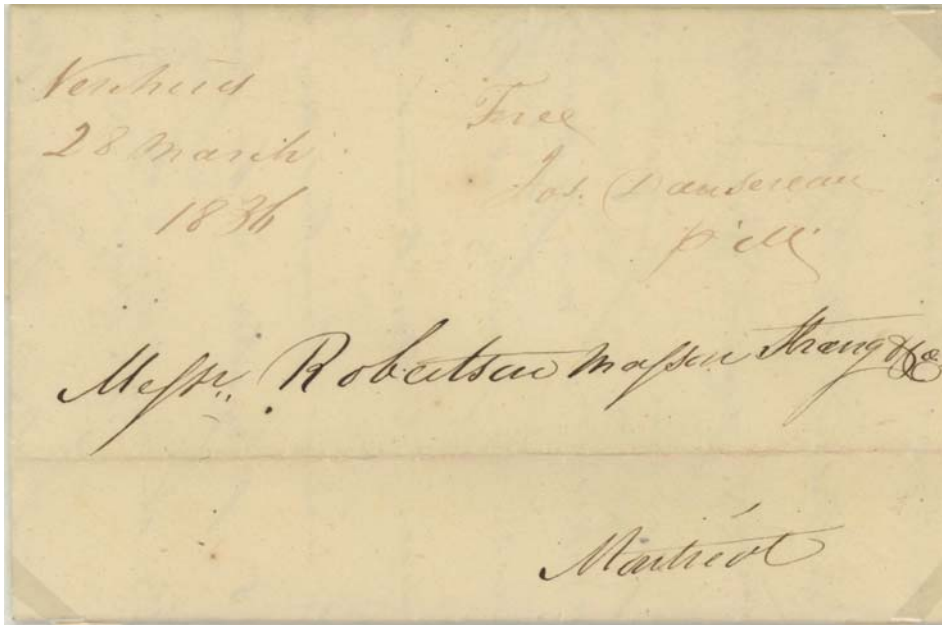 Verchères
28 March
1836
Free
Jos. Dansereau
P.M.
Messrs. Robertson Masson Strang & Co
Montréal